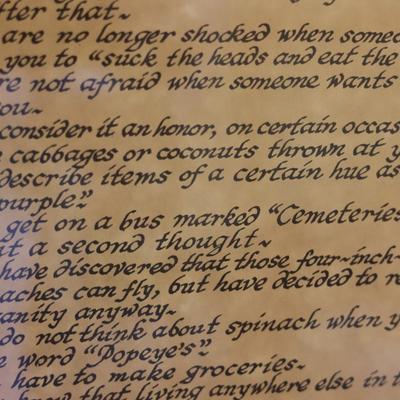 fter that~
are no longer shocked when someo
you to "suck the heads and eat the
re not afraid when someone wants
ou.~
consider it an honor, on certain occas
e cabbages or coconuts thrown at y
describe items of a certain hue as
purple."
get on a bus marked "Cemeteries
it a second thought~
have discovered that those four-inch-
aches can fly, but have decided to re
anity anyway~
do not think about spinach when y
e word "Popeye's".
have to make groceries~
know that living anywhere else in t